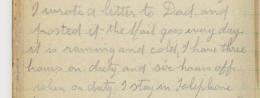 I wrote a letter to Dad, and
posted it the Mail goes every day
it is raining and cold, I have three
hours on duty and six hours off
when on duty I stay in Telephone